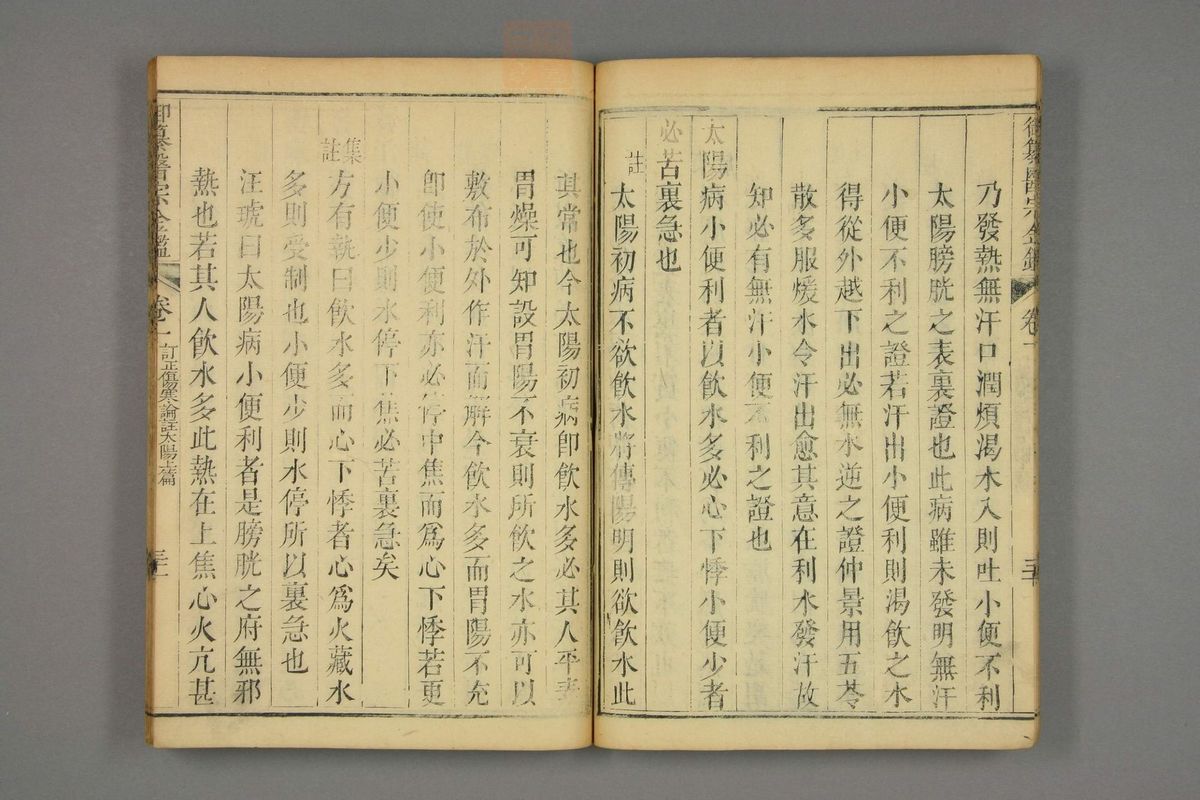 乃發熱無汗口潤煩渴水入則吐小便不利
太陽膀胱之表裏證也此病雖未發明無汗
小便不利之證若汗出小便利則渴飲之水
得從外越下出必無水逆之證仲景用五苓
散多服煖水令汗出愈其意在利水發汗故
知必有無汗小便不利之證也
太陽病小便利者以飲水多必心下悸小便少者
必苦裏急也
註
太陽初病不欲飲水將傳陽明則欲飲水此
其常也今太陽初病卽飲水多必其人平素
胃燥可知設胃陽不衰則所飲之水亦可以
敷布於外作汗而解今飲水多而胃陽不充
卽使小便利亦必停中焦而爲心下悸若更
小便少則水停下焦必苦裏急矣
集註
方有執曰飲水多而心下悸者心爲火藏水
多則受制也小便少則水停所以裏急也
汪琥曰太陽病小便利者是膀胱之府無邪
熱也若其人飲水多此熱在上焦心火亢甚
御纂醫宗金鑑
卷一
訂正傷寒論註太陽上篇